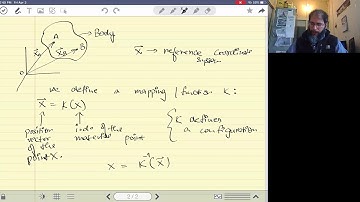 Fri Apr 2
A
Body
X̄_A
X̄_B
B
O
X̄ → reference coordinate
system
we define a mapping / function K:
X̄ = K(X)
position
vector
of the
point X.
index of the
material point
K defines
a configuration
X = K⁻¹(X̄)